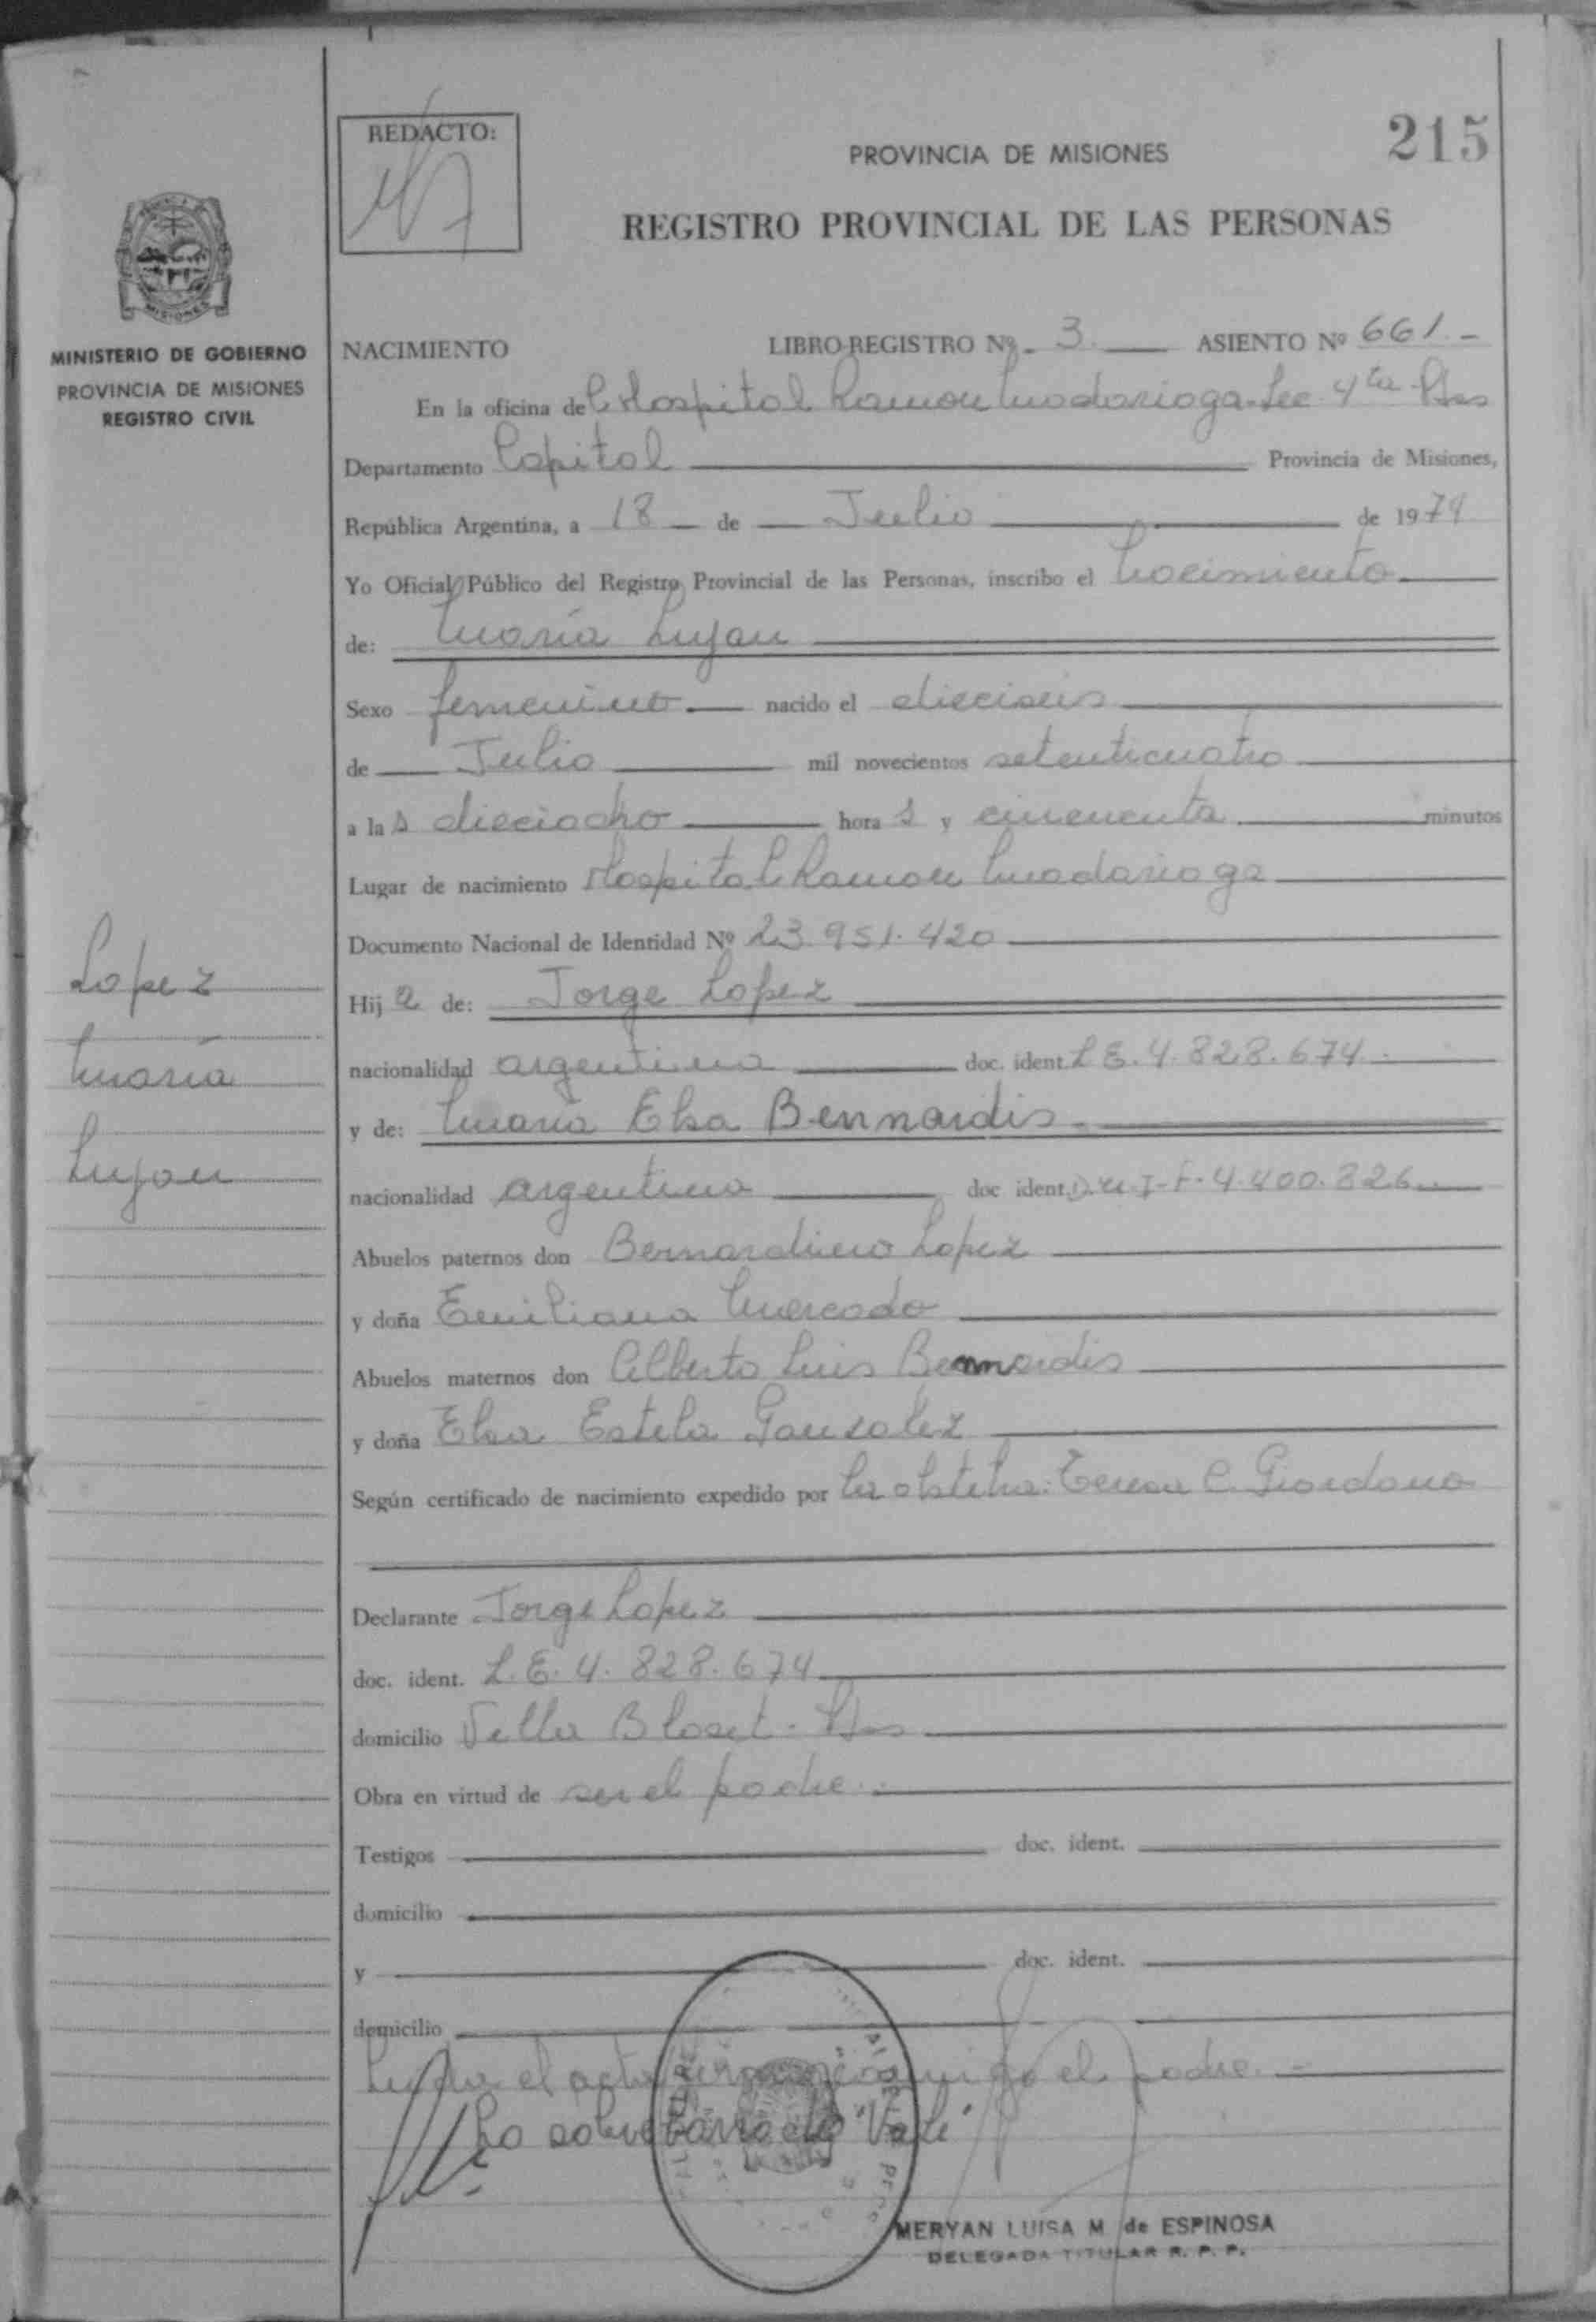 REDACTO:
215
PROVINCIA DE MISIONES
REGISTRO PROVINCIAL DE LAS PERSONAS
MISIONES
MINISTERIO DE GOBIERNO
PROVINCIA DE MISIONES
REGISTRO CIVIL
NACIMIENTO LIBRO-REGISTRO Nº 3 ASIENTO Nº 661
En la oficina del Hospital Ramon Madariaga-Sec 4ta Pdas
Departamento Capital Provincia de Misiones,
República Argentina, a 18 de Julio de 1974
Yo Oficial Público del Registro Provincial de las Personas, inscribo el nacimiento
de: María Lujan
Sexo femenino nacido el dieciseis
de Julio mil novecientos setenticuatro
a las dieciocho horas y cincuenta minutos
Lugar de nacimiento Hospital Ramon Madariaga
Documento Nacional de Identidad Nº 23.951.420
Hija de: Jorge Lopez
nacionalidad argentina doc. ident. L.E. 4.828.674
y de: María Elsa Bennardis
nacionalidad argentina doc ident. D.N.I-F-4.400.826
Abuelos paternos don Bernardino Lopez
y doña Emiliana Mercado
Abuelos maternos don Alberto Luis Bennardis
y doña Elsa Estela Gonzalez
Según certificado de nacimiento expedido por la obstetra: Teresa C. Giordano
Declarante Jorge Lopez
doc. ident. L.E. 4.828.674
domicilio Villa Blosset - Pdas
Obra en virtud de ser el padre
Testigos doc. ident.
domicilio
y doc. ident.
domicilio
Leida el acta firma conmigo el padre.
Lo sobreborrado "Vale"
MERYAN LUISA M. de ESPINOSA
DELEGADA TITULAR R. P. P.
Lopez
María
Lujan